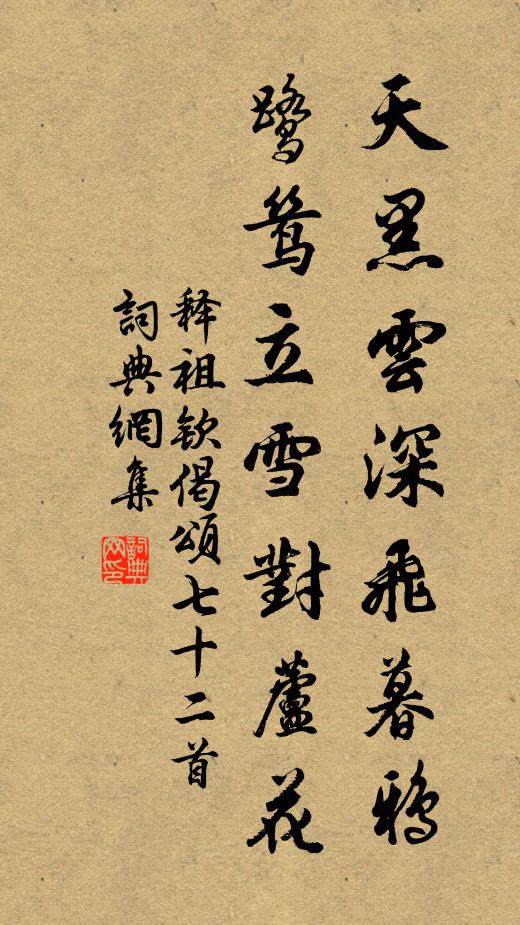 天黑雲深飛暮鴉
鷺鶿立雪對蘆花
释祖钦偈頌七十二首
詞典網集
詞典网印